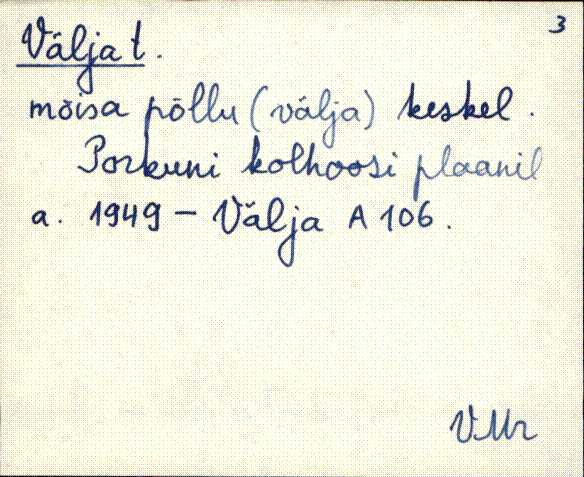 3
Välja t.
mõisa põllu (välja) keskel.
Porkuni kolhoosi plaanil
a. 1949 – Välja A 106.
VMr